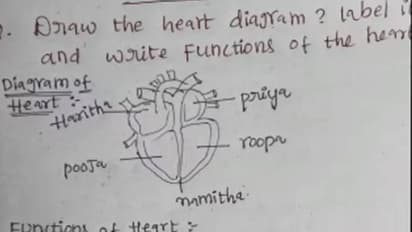 Draw the heart diagram? label i
and write Functions of the hear
Diagram of
Heart :-
Haritha
priya
pooja
roopa
namitha
Functions of Heart :-